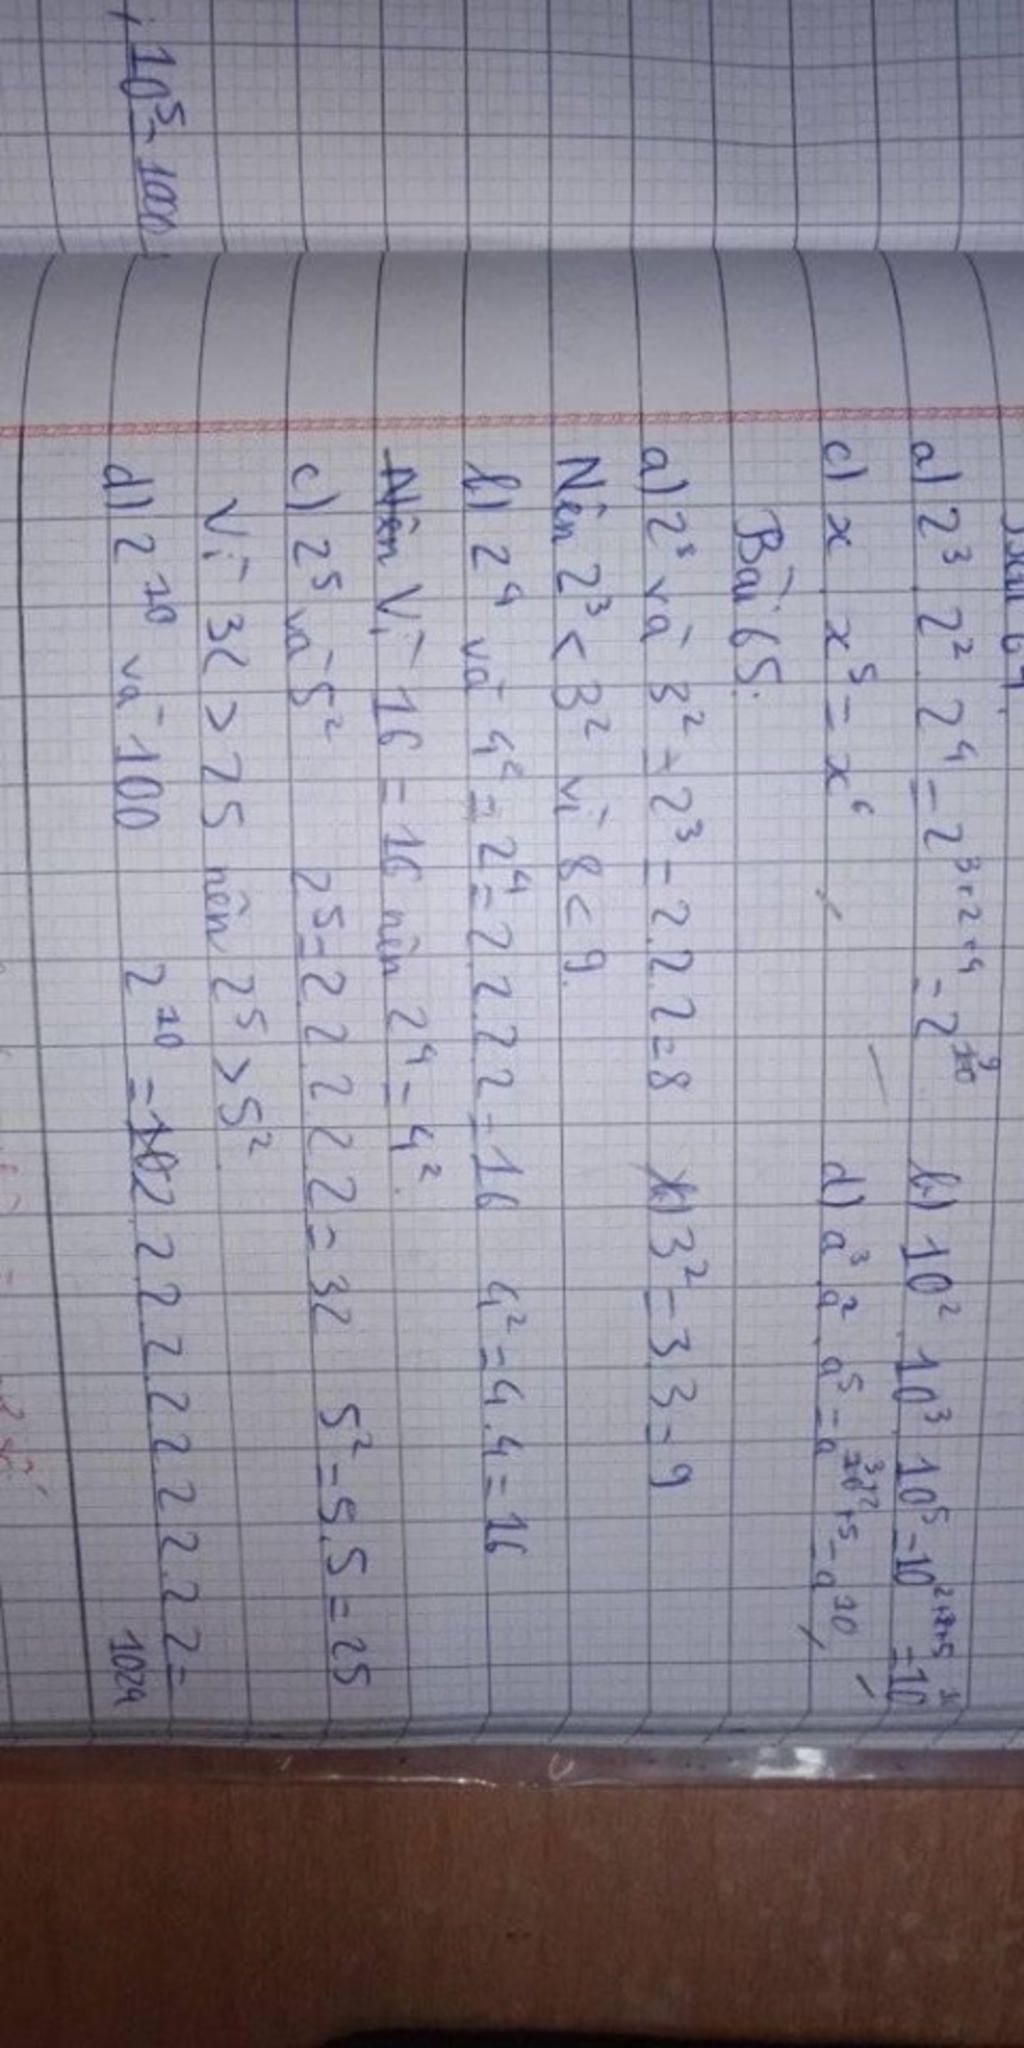 10⁵ = 1000
Bài 64
a) 2³ . 2² . 2⁴ = 2³⁺²⁺⁴ = 2⁹ b) 10² . 10³ . 10⁵ = 10²⁺³⁺⁵ = 10¹⁰
c) x . x⁵ = x⁶ d) a³ . a² . a⁵ = a³⁺²⁺⁵ = a¹⁰
Bài 65.
a) 2³ và 3² + 2³ = 2.2.2 = 8 3² = 3.3 = 9
Nên 2³ < 3² vì 8 < 9.
b) 2⁴ và 4² = 2⁴ = 2.2.2.2 = 16 4² = 4.4 = 16
Vì 16 = 16 nên 2⁴ = 4².
c) 2⁵ và 5² 2⁵ = 2.2.2.2.2 = 32 5² = 5.5 = 25
Vì 32 > 25 nên 2⁵ > 5².
d) 2¹⁰ và 100 2¹⁰ = 2.2.2.2.2.2.2.2.2.2 =
1024